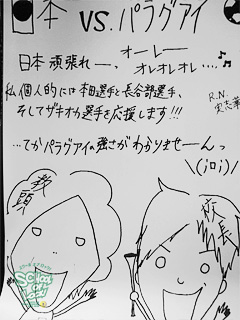 日本 VS. パラグアイ
日本 頑張れーっ オーレー オレオレオレ…♪
私個人的には本田選手と長谷部選手、
そしてザキオカ選手を応援します!!!
R.N.
…てかパラグアイの強さがわかりませーんっ
\(ioi)/
教頭
校長